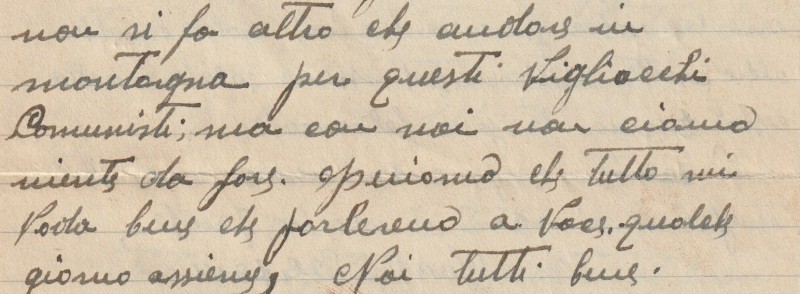 non si fa altro che andare in
montagna per questi Vigliacchi
Comunisti; ma con noi non ciano
niente da fare. Speriamo che tutto mi
Vada bene che parleremo a Voce. qualche
giorno assieme, Noi tutti bene.